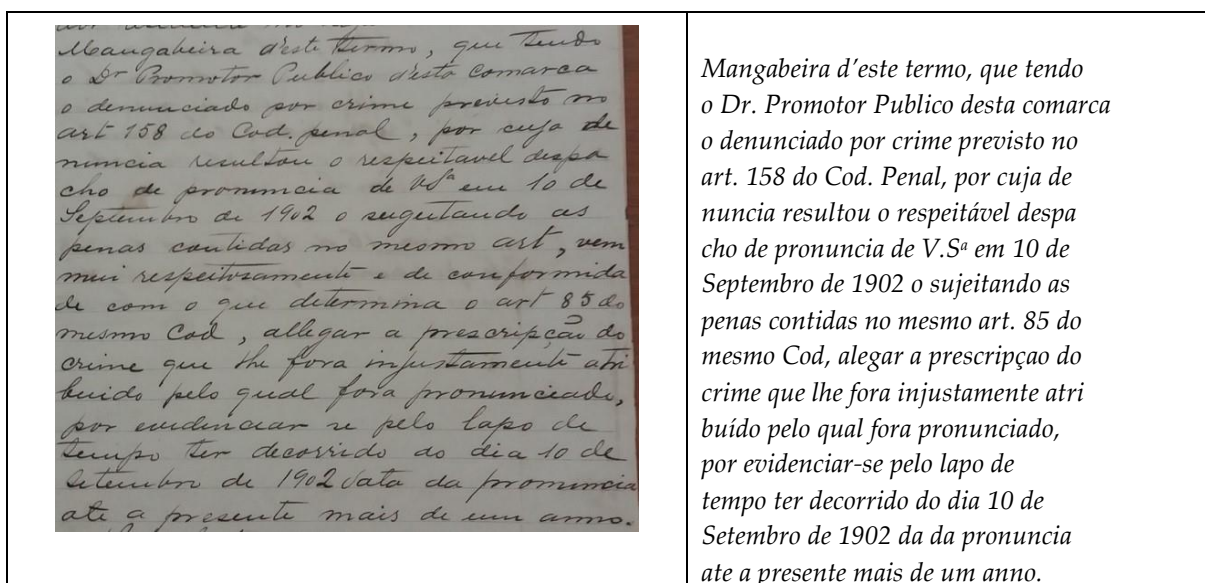 Mangabeira d'este termo, que tendo
o Dr Promotor Publico d'esta comarca
o denunciado por crime previsto no
art 158 do Cod. penal, por cuja de
nuncia resultou o respeitavel despa
cho de pronuncia de VSª em 10 de
Septembro de 1902 o sugeitando as
penas contidas no mesmo art, vem
mui respeitosamente e de conformida
de com o que determina o art 85 do
mesmo Cod, allegar a prescripção do
crime que lhe fora injustamente atri
buido pelo qual fora pronunciado,
por evidenciar se pelo lapso de
tempo ter decorrido do dia 10 de
Setembro de 1902 data da pronuncia
ate a presente mais de um anno.
Mangabeira d'este termo, que tendo
o Dr. Promotor Publico desta comarca
o denunciado por crime previsto no
art. 158 do Cod. Penal, por cuja de
nuncia resultou o respeitável despa
cho de pronuncia de V.Sª em 10 de
Septembro de 1902 o sujeitando as
penas contidas no mesmo art. 85 do
mesmo Cod, alegar a prescripçao do
crime que lhe fora injustamente atri
buído pelo qual fora pronunciado,
por evidenciar-se pelo lapso de
tempo ter decorrido do dia 10 de
Setembro de 1902 da da pronuncia
ate a presente mais de um anno.